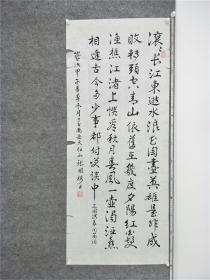 滚滚长江东逝水浪花淘盡英雄是非成
败转头空青山依旧在几度夕阳红白发
渔樵江渚上惯看秋月春风一壶浊酒喜
相逢古今多少事都付笑谈中
甲午